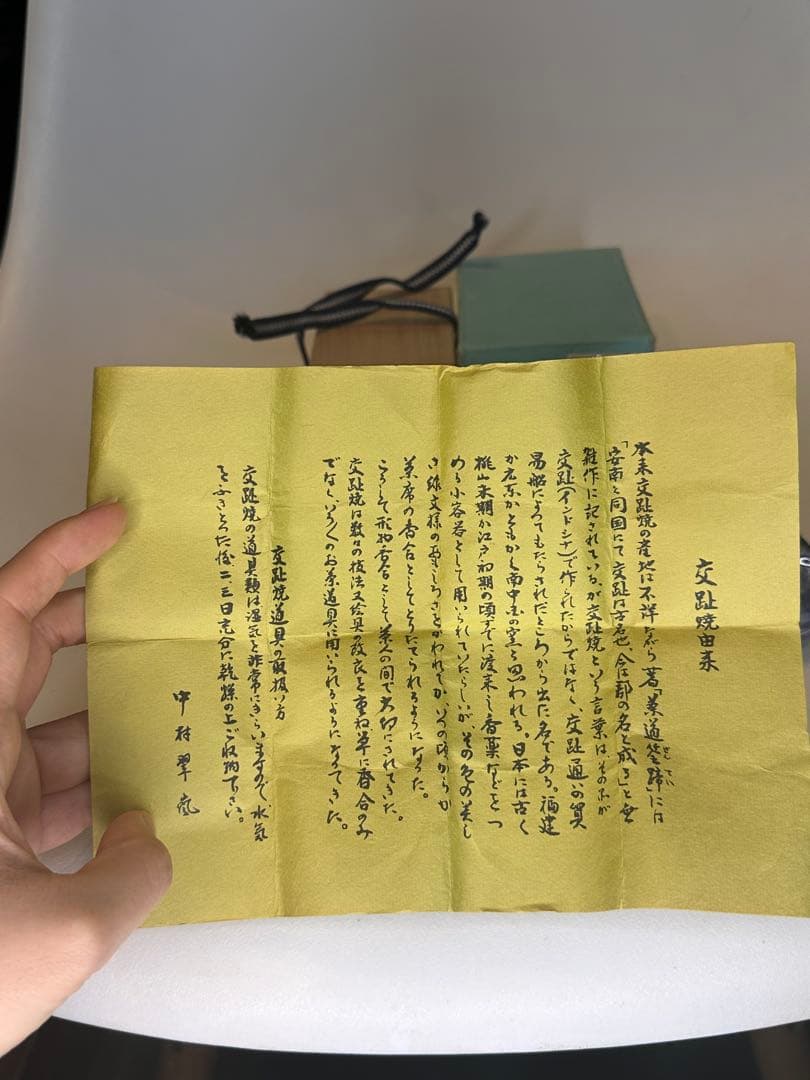 交趾焼由来
本来交趾焼の産地は不詳ながら著「茶道筌蹄」には
せん てい
「安南と同国にて交趾は古名也、今は郡の名と成る」と
雑作に記されている、が交趾焼という言葉はそのホが
交趾(インドシナ)で作られたからではなく、交趾通いの貿
易船によってもたらされたところから出た名である。福建
か広東かともかく南中国の窯と思われる。日本には古く
桃山末期か江戸初期の頃すでに渡来し香薬などをつ
める小容器として用いられていたらしいが、その色の美し
さ線文様のおもしろさとがわれてか、いつの頃からか
茶席の香合としてとりたてられるようになった。
こうして形物香合として茶人の間で大切にされてきた。
交趾焼は数々の技法又絵具の改良を重ね単に香合のみ
でなく、いろ〱のお茶道具に用いられるようになってきた。
交趾焼道具の取扱い方
交趾焼の道具類は湿気を非常にきらいますので、水気
をふきとった後二、三日充分に乾燥の上ご収納下さい。
中村翠嵐